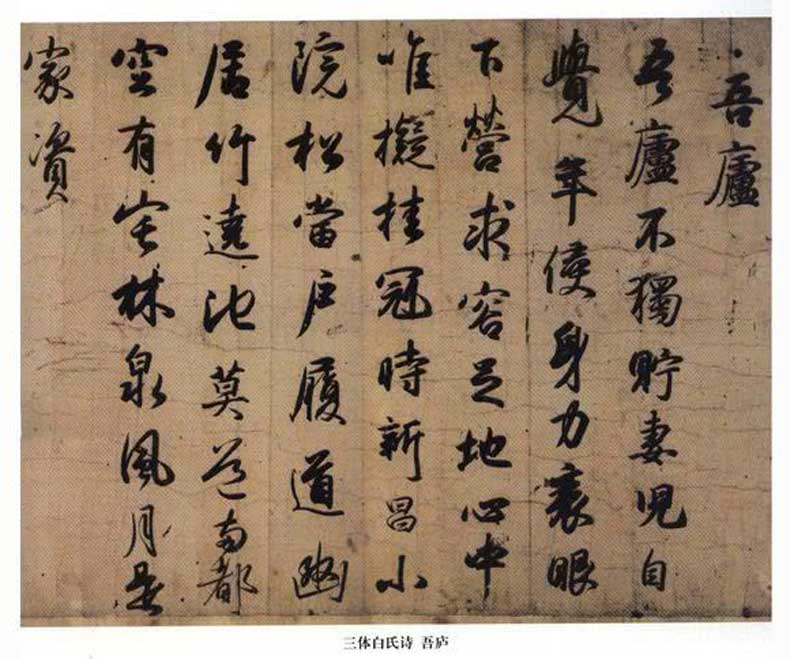 吾廬
吾廬不獨貯妻児自
覺年侵身力衰眼
下營求容足地心中
准擬挂冠時新昌小
院松當戶履道幽
居竹遶池莫道両都
空有宅林泉風月是
家資
三体白氏诗 吾庐